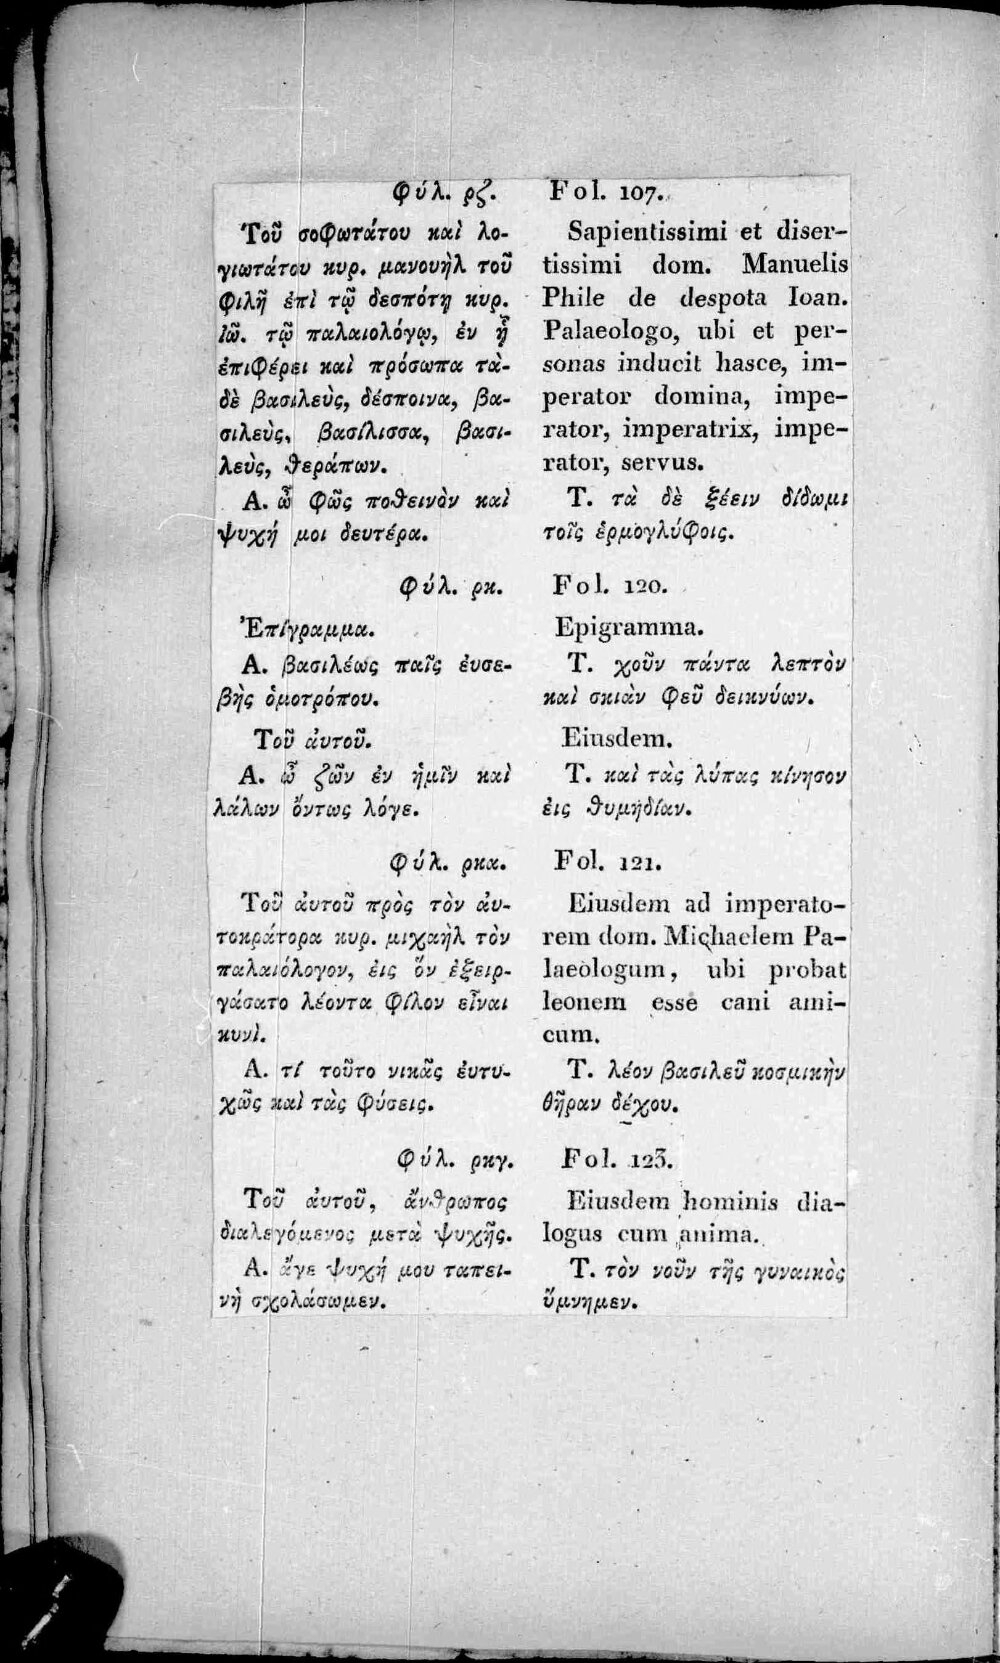 Φύλ. ρζ.
Τοῦ σοφωτάτου καὶ λο-
γιωτάτου κυρ. μανουὴλ τοῦ
φιλῆ ἐπὶ τῷ δεσπότῃ κυρ.
ἰῶ. τῷ παλαιολόγῳ, ἐν ᾗ
ἐπιφέρει καὶ πρόσωπα τὰ-
δὲ βασιλεὺς, δέσποινα, βα-
σιλεὺς, βασίλισσα, βασι-
λεὺς, θεράπων.
Α. ὦ φῶς ποθεινὸν καὶ
ψυχή μοι δευτέρα.
Φύλ. ρκ.
Ἐπίγραμμα.
Α. βασιλέως παῖς ἐυσε-
βὴς ὁμοτρόπου.
Τοῦ ἀυτοῦ.
Α. ὦ ζῶν ἐν ἡμῖν καὶ
λάλων ὄντως λόγε.
Φύλ. ρκα.
Τοῦ ἀυτοῦ πρὸς τὸν ἀυ-
τοκράτορα κυρ. μιχαὴλ τὸν
παλαιόλογον, ἐις ὅν ἐξειρ-
γάσατο λέοντα φίλον εἶναι
κυνὶ.
Α. τί τοῦτο νικᾶς ἐυτυ-
χῶς καὶ τὰς φύσεις.
Φύλ. ρκγ.
Τοῦ ἀυτοῦ, ἄνθρωπος
διαλεγόμενος μετὰ ψυχῆς.
Α. ἄγε ψυχή μου ταπει-
νὴ σχολάσωμεν.
Fol. 107.
Sapientissimi et diser-
tissimi dom. Manuelis
Phile de despota Ioan.
Palaeologo, ubi et per-
sonas inducit hasce, im-
perator domina, impe-
rator, imperatrix, impe-
rator, servus.
Τ. τὰ δὲ ξέειν δίδωμι
τοῖς ἑρμογλύφοις.
Fol. 120.
Epigramma.
Τ. χοῦν πάντα λεπτὸν
καὶ σκιὰν φεῦ δεικνύων.
Eiusdem.
Τ. καὶ τὰς λύπας κίνησον
ἐις θυμηδίαν.
Fol. 121.
Eiusdem ad imperato-
rem dom. Michaelem Pa-
laeologum, ubi probat
leonem esse cani ami-
cum.
Τ. λέον βασιλεῦ κοσμικὴν
θῆραν δέχου.
Fol. 123.
Eiusdem hominis dia-
logus cum anima.
Τ. τὸν νοῦν τῆς γυναικὸς
ὕμνημεν.